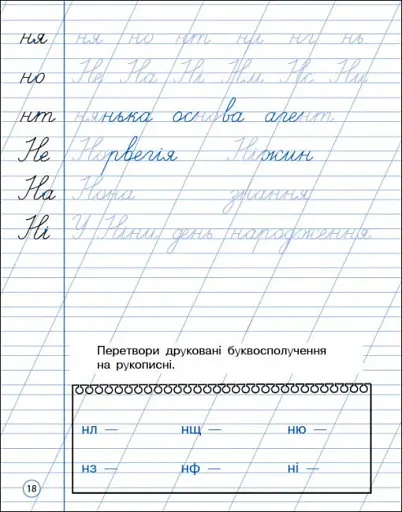 ня ня но нт нл нг нь
но Не На Ні Нм Нк Ни
нт нянька основа агент
Не Норвегія Ніжин
На Ножа знання
Ні У Ніни день народження
Перетвори друковані буквосполучення
на рукописні.
нл — нщ — ню —
нз — нф — ні —
18